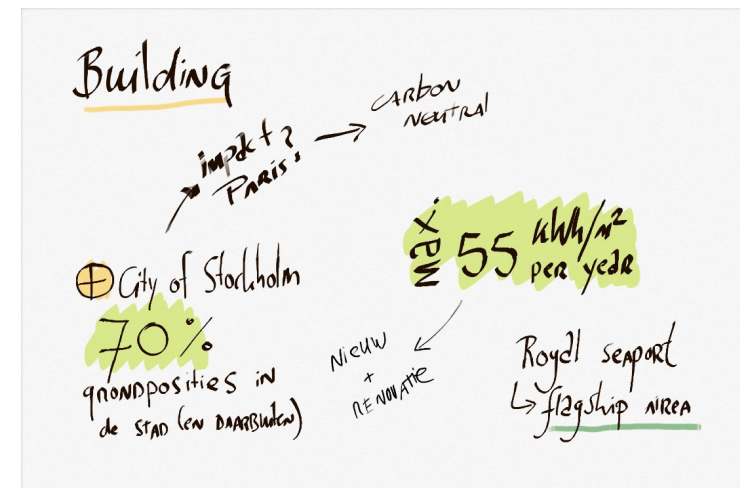 Building
impact?
Paris!
CARBON
NEUTRAL
City of Stockholm
70%
grondposities in
de STAD (EN DAARBUITEN)
max. 55 kWh/m²
per year
Nieuw
+
RENOVATIE
Royal seaport
flagship AREA